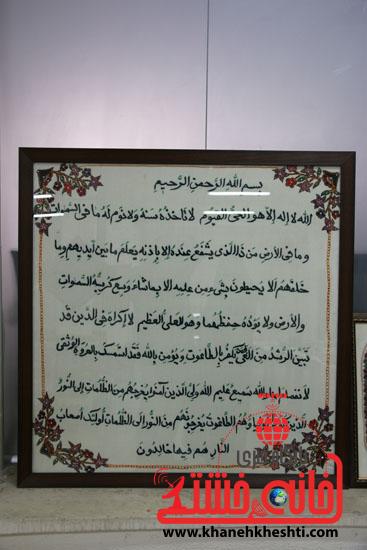 بسم الله الرحمن الرحیم
الله لا اله الا هو الحی القیوم لا تاخذه سنة ولا نوم له ما فی السموات
وما فی الارض من ذا الذی یشفع عنده الا باذنه یعلم ما بین ایدیهم وما
خلفهم ولا یحیطون بشیء من علمه الا بما شاء وسع کرسیه السموات
والارض ولا یؤده حفظهما وهو العلی العظیم لا اکراه فی الدین قد
تبین الرشد من الغی فمن یکفر بالطاغوت ویؤمن بالله فقد استمسک بالعروة الوثقی
لا انفصام لها والله سمیع علیم الله ولی الذین آمنوا یخرجهم من الظلمات الی النور
والذین اولیاؤهم الطاغوت یخرجونهم من النور الی الظلمات أولئک أصحاب
النار هم فیها خالدون
خانه خشتی
www.khanehkheshti.com